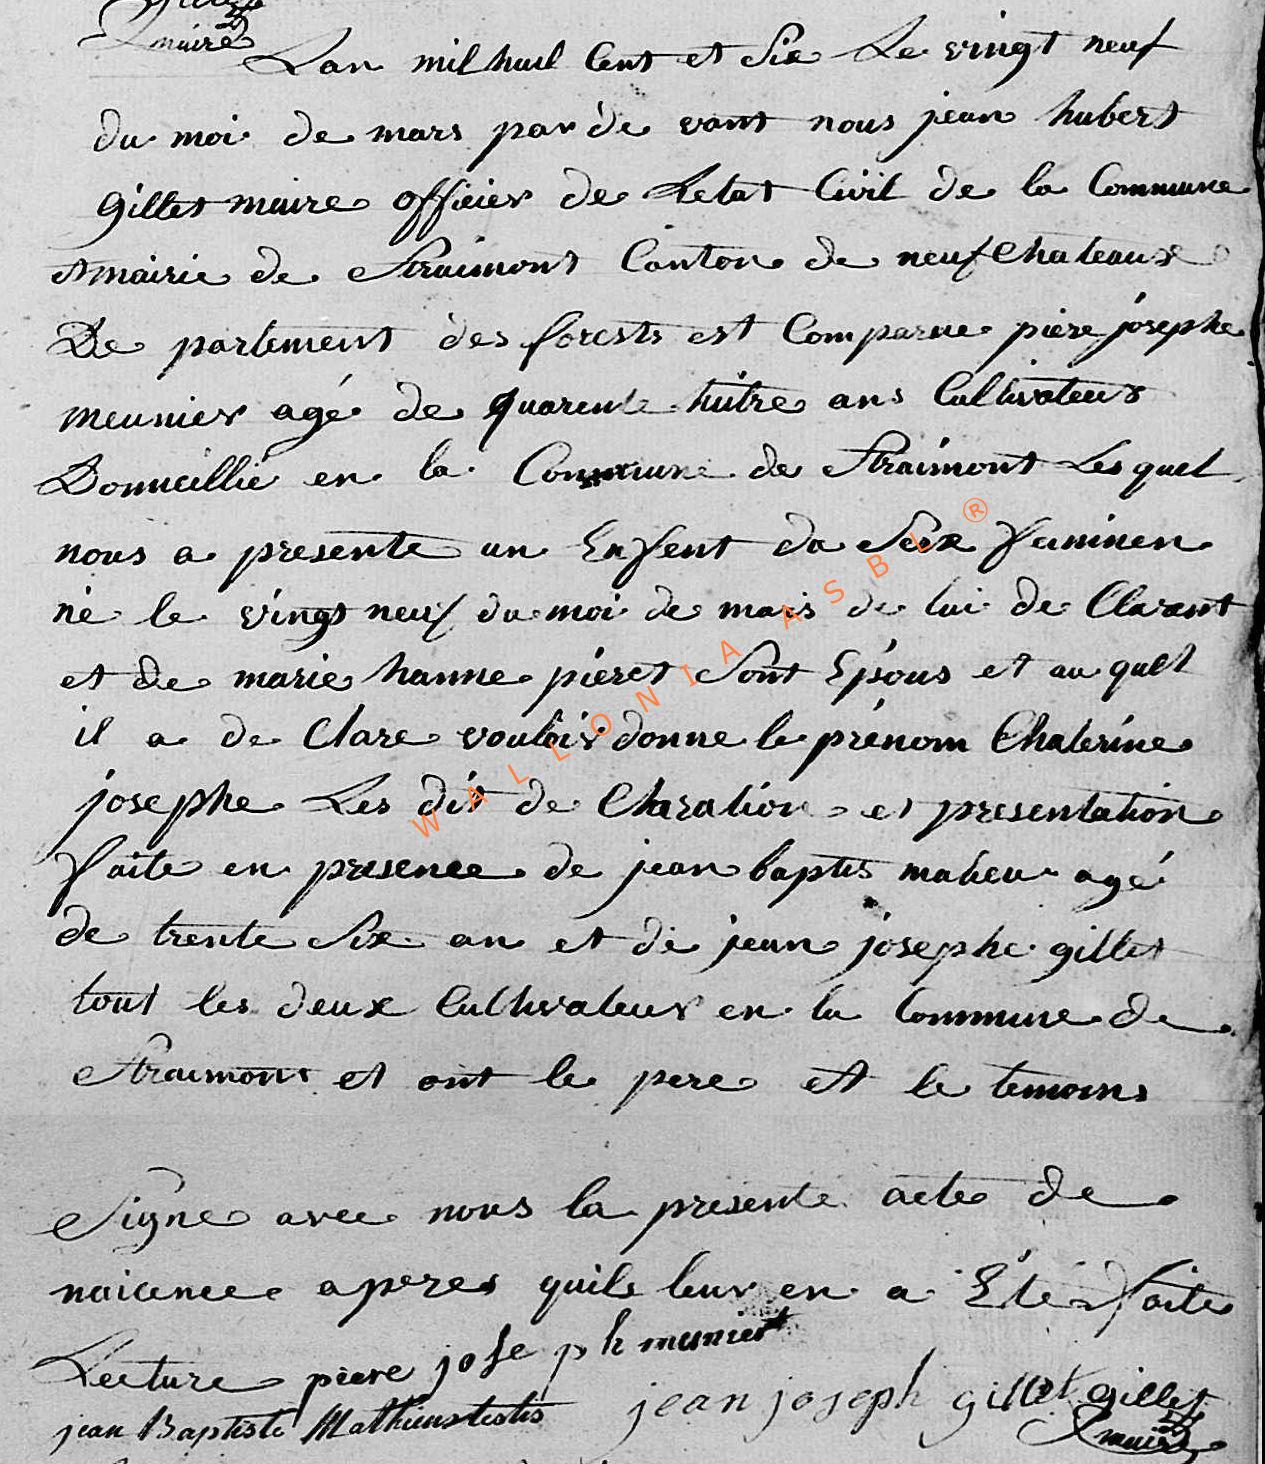 maire
Lan mil huit Cent et Six Le vingt neuf
du moi de mars par de vant nous jean hubert
Gillet maire officier de Letat Civil de la Commune
et mairie de Straimont Canton de neufchateaux
De partement des forests est Comparue piere josephe
meunier agé de quarente huitre ans Cultivateur
Domicillié en la Commune de Straimont Les quel
nous a presente un Enfent du Sexe feminen
né le vingt neuf du moi de mars de lui de Clarant
et de marie hanne pieret Sont Epous et au quel
il a de Clare vouloir donne le prénom Chaterine
josephe Les dit de Claration et presentation
faite en presence de jean baptis maheu agé
de trente Six an et de jean josephe gillet
tout les deux Cultivateur en la Commune de
Straimont et ont le pere et le temoins
Signe avec nous la presente acte de
naicence aperes quile leur en a Eté faite
Lecture piere joseph munier
jean Baptiste Mathieu testis jean joseph gillet Gillet
maire
WALLONIA ASBL ®